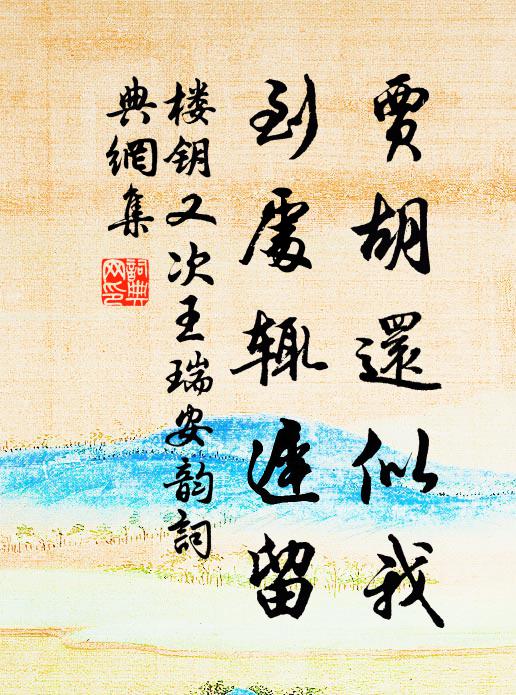 賈胡還似我
到處輒遲留
楼钥又次王瑞安韵詞
典網集
詞典网印